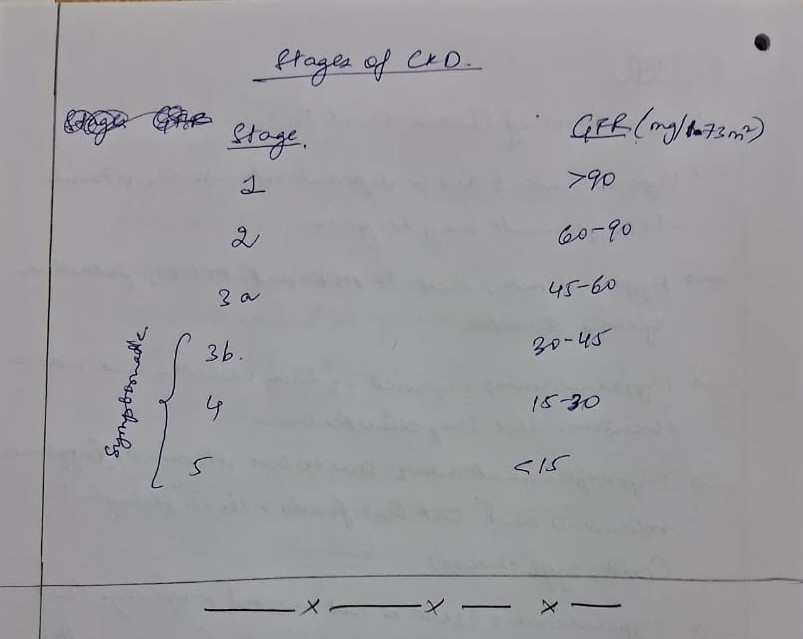 Stages of CKD.
Stage. GFR (mg/1.73m²)
1 >90
2 60-90
3a 45-60
3b. 30-45
4 15-30
5 <15
Symptomatic